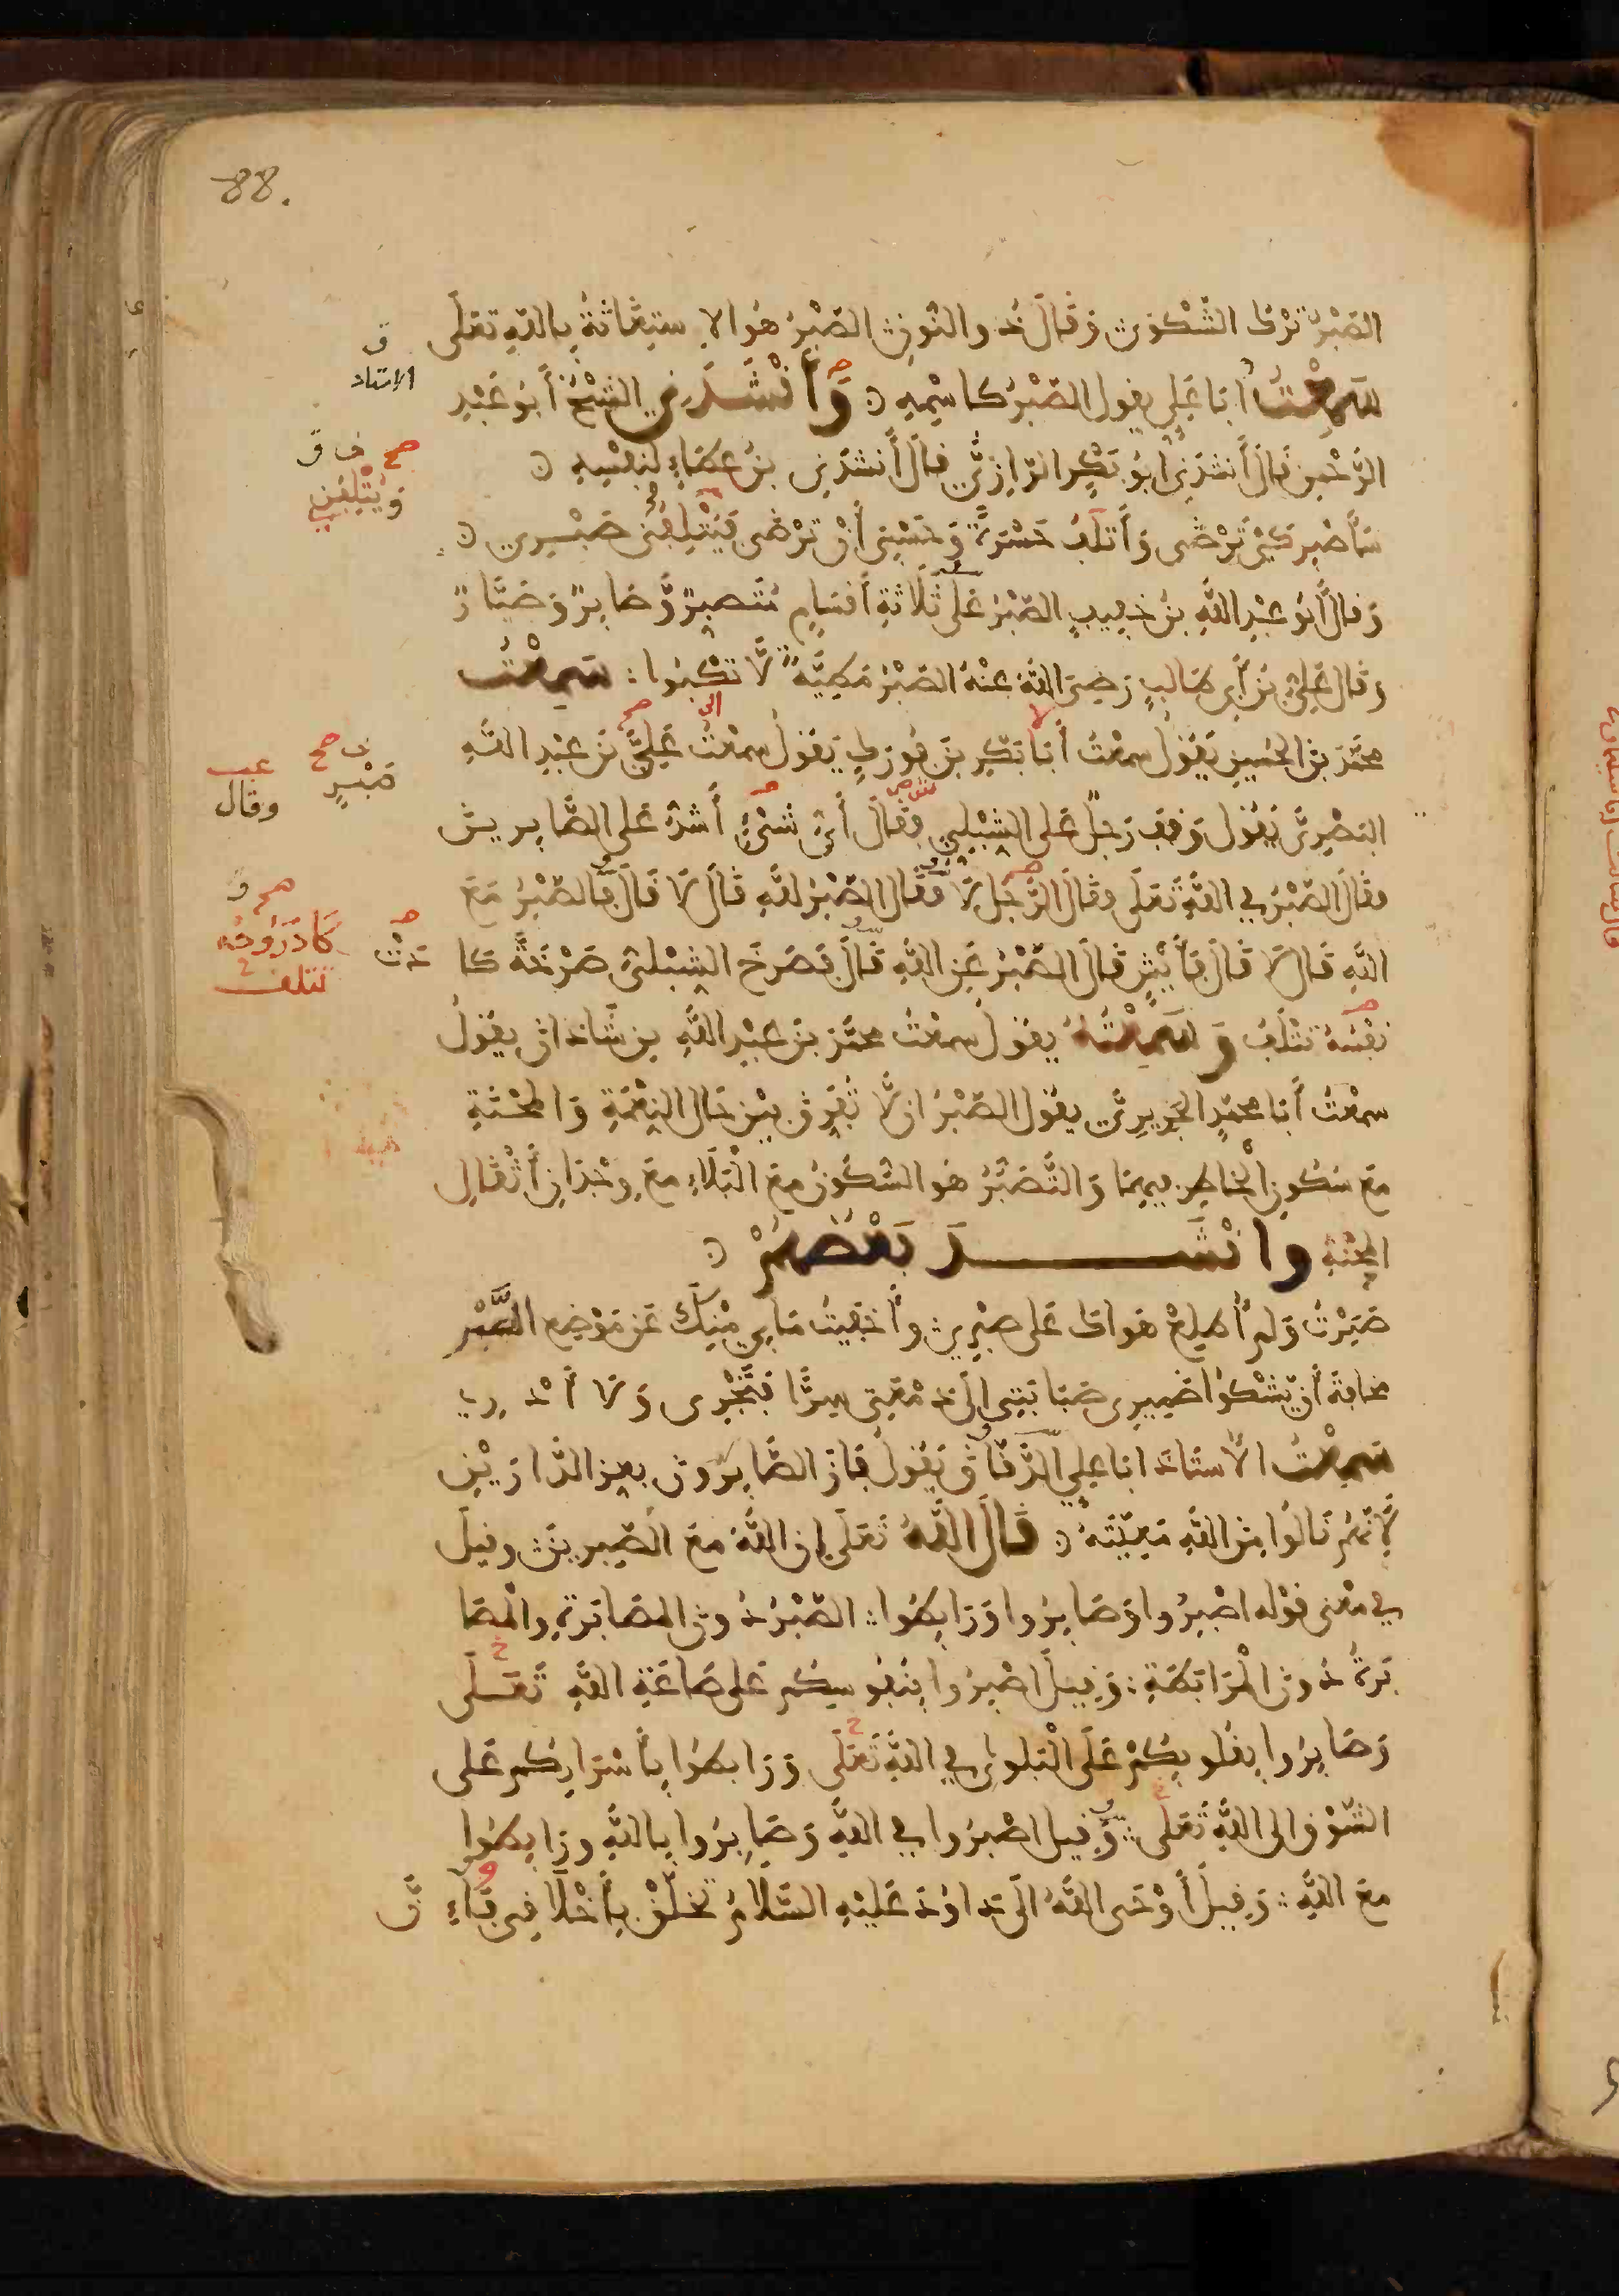 88.
الصَّبْرُ تَرْكُ الشَّكْوَى وَقَالَ ذُو النُّونِ الصَّبْرُ هُوَ الاِسْتِغَاثَةُ بِاللهِ تَعَلَى
ق
الاستاد
سَمِعْتُ أَبَا عَلِيٍّ يقول الصَّبْرُ كاسْمِهِ وَأَنْشَدَنِي الشَّيْخُ أَبُو عَبْدِ
الرَّحْمٰنِ قَالَ أَنْشَدَنِي أَبُو بَكْرٍ الرَّازِيُّ قَالَ أَنشَدَنِي بنُ عَطَاءٍ لِنَفْسِهِ
صح خ ق
وَيُتْلِفُنِي
سَأَصْبِرُ كَيْ تَرْضَى وَأَتْلَفُ حَسْرَةً وَحَسْبِي أَنْ تَرْضَى وَيُتْلِفُنِي صَبْرِي
وَقَالَ أَبُو عَبْدِ اللهِ بنُ خَفِيفٍ الصَّبْرُ عَلَى ثَلَاثَةِ أَقْسَامٍ مُتَصَبِّرٌ وَصَابِرٌ وَصَبَّارٌ
وَقَالَ عَلِيُّ بْنُ أَبِي طَالِبٍ رَضِيَ اللهُ عَنْهُ الصَّبْرُ مَطِيَّةٌ لَا تَكْبُوا سَمِعْتُ
مُحَمَّدَ بْنَ الحُسَيْنِ يَقُولُ سمعْتُ أَبَا بَكْرِ بْنَ يَقُولُ سمعْتُ عَلِيَّ بْنَ عَبْدِ اللهِ
خ صح
صَبْرٍ
وقال
البَصْرِيَّ يَقُولُ وَقَفَ رَجُلٌ عَلَى الشِّبْلِيِّ فَقَالَ أَيُّ شَيْءٍ أَشَدُّ عَلَى الصَّابِرِينَ
فقَالَ الصَّبْرُ فِي اللهِ تَعَلَى فقَالَ الرَّجُلُ لَا فَقَالَ الصَّبْرُ لِلهِ قَالَ لَا قَالَ فَالصَّبْرُ مَعَ
اللهِ قَالَ لَا قَالَ فَأَيْشٍ قَالَ الصَّبْرُ عَنِ اللهِ قَالَ فَصَرَخَ الشِّبْلِيُّ صَرْخَةً كَا
دَتْ
كَادَ رُوحُه
تتلف
نَفْسُهُ تَتْلَفُ وَسَمِعْتُهُ يقُولُ سمعْتُ مُحَمَّدَ بْنَ عَبْدِ اللهِ بنِ شَاذَانَ يقُولُ
سمعْتُ أَبَا مُحَمَّدٍ الجَرِيرِيَّ يقُولُ الصَّبْرُ أن لَّا تُفَرِّقَ بَيْنَ حَالِ النِّعْمَةِ وَالمِحْنَةِ
مَعَ سُكُونِ الْخَاطِرِ فِيهِمَا وَالتَّصَبُّرُ هُوَ السُّكُونُ مَعَ الْبَلَاءِ مَعَ وِجْدَانِ أَثْقَالِ
المِحْنَةِ وانْشَدَ بَعْضُهُمْ
صَبَرْتُ وَلَمْ أُطْلِعْ هَوَاكَ عَلَى صَبْرِي وَأَخْفَيْتُ مَا بِي مِنْكَ عَنْ مَوْضِعِ الصَّبْرِ
مَخَافَةَ أَنْ يَشْكُوا ضَمِيرِي صَبَابَتِي إِلَى دَمْعَتِي سِرًّا فَتَجْرِى وَلَا أَدْرِي
سَمِعْتُ الأستاذ أبا عَلِيٍّ الدَّقَّاقَ يَقُولُ فَازَ الصَّابِرُونَ بِعِزِّ الدَّارَيْنِ
لِأَنَّهُمْ نَالُوا مِنَ اللهِ مَعِيَّتَهُ قَالَ اللهُ تَعَلَى إِنَّ اللهَ مَعَ الصَّبِرِينَ وقِيلَ
فِي مَعْنَى قَوْلِهِ اصْبِرُوا وَصَابِرُوا وَرَابِطُوا الصَّبْرُ دُونَ المُصَابَرَةِ وَالْمُصَا
بَرَةُ دُونَ الْمُرَابَطَةِ وَقِيلَ اصْبِرُوا بِنُفُوسِكُمْ عَلَى طَاعَةِ اللهِ تَعَلَى
وَصَابِرُوا بِقُلُوبِكُمْ عَلَى الْبَلْوَى فِي اللهِ تَعَلَى وَرَابِطُوا بِأَسْرَارِكُمْ عَلَى
الشَّوْقِ الى اللهِ تَعَلَى وَقِيلَ اصْبِرُوا فِي اللهِ وَصَابِرُوا بِاللهِ ورَابِطُوا
مَعَ اللهِ وَقِيلَ أَوْحَى اللهُ الَى دَاوُدَ عَلَيْهِ السَّلَامُ تَخَلَّقْ بِأَخْلَاقِي فَإِنَّ